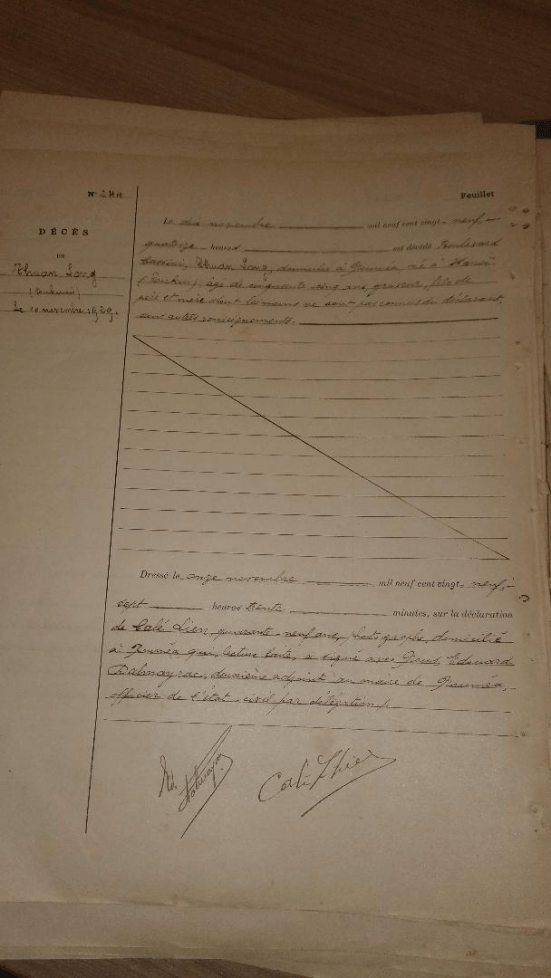 N°
Feuillet
DÉCÈS
DE
Thuan Long
(tonkinois)
Le 10 novembre 1929.
Le dix novembre mil neuf cent vingt-neuf
quatorze heures est décédé Boulevard
Thuan Long, domicilié à Nouméa né à Hanoï
(Tonkin), âgé de cinquante cinq ans, fils de
père et mère dont les noms ne sont pas connus du déclarant,
sans autres renseignements.
Dressé le onze novembre mil neuf cent vingt-neuf
sept heures trente minutes, sur la déclaration
de Calé Lien, quarante neuf ans, domicilié
à Nouméa qui, lecture faite, a signé avec Nous, Edouard
Dalmayrac, deuxième adjoint au maire de Nouméa,
officier de l'état civil par délégation